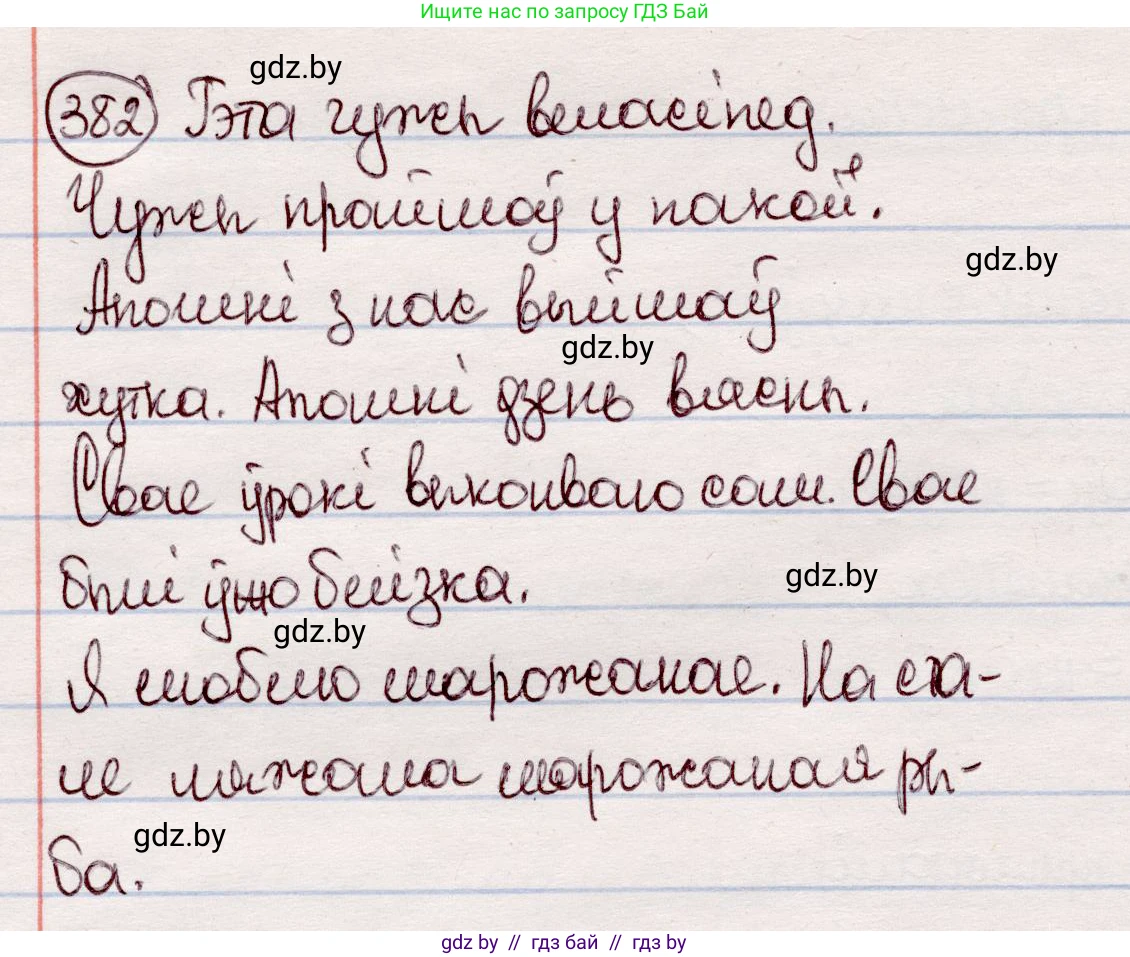 Ищите нас по запросу ГДЗ Бай
gdz.by
382 Гэта чужы веласіпед.
Чужы прайшоў у пакой.
gdz.by
Апошні з нас выйшаў
gdz.by
хутка. Апошні дзень вясны.
Свае ўрокі выконваю сам. Свае
былі ўжо блізка.
gdz.by
gdz.by
Я люблю марожанае. На ста-
ле ляжала марожаная ры-
gdz.by
ба.
gdz by // гдз бай // гдз by